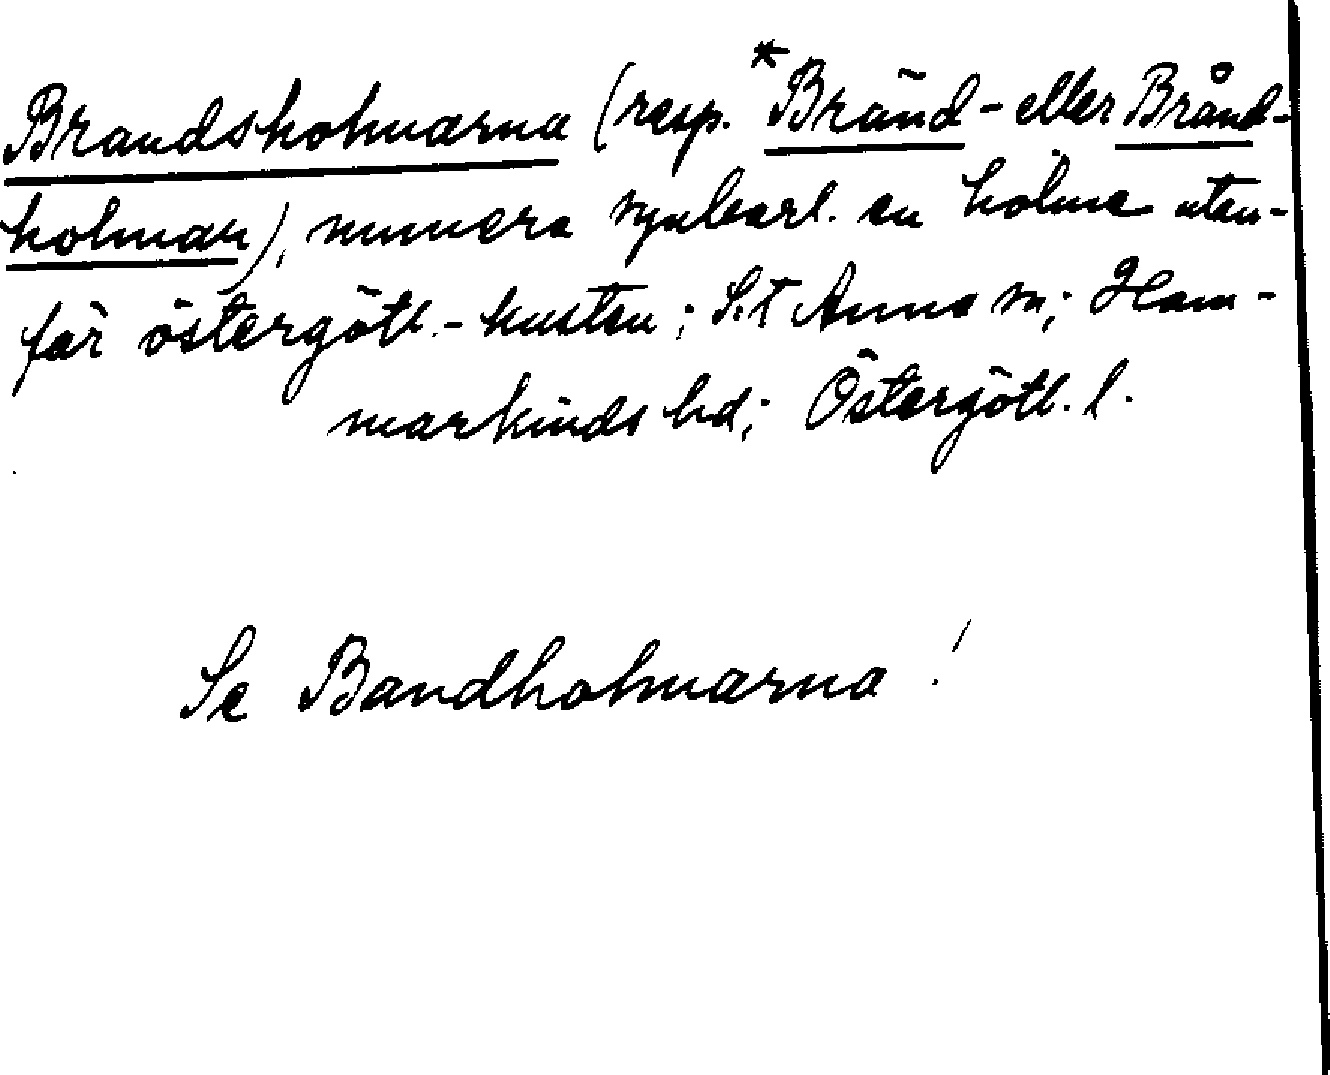 Brandsholmarna (resp. *Bränd- eller Brånd-
holmar), numera synbarl. en holme utan-
för östergötl.-kusten; S:t Anna sn; Ham-
markinds hd; Östergötl. l.
Se Bandholmarna!